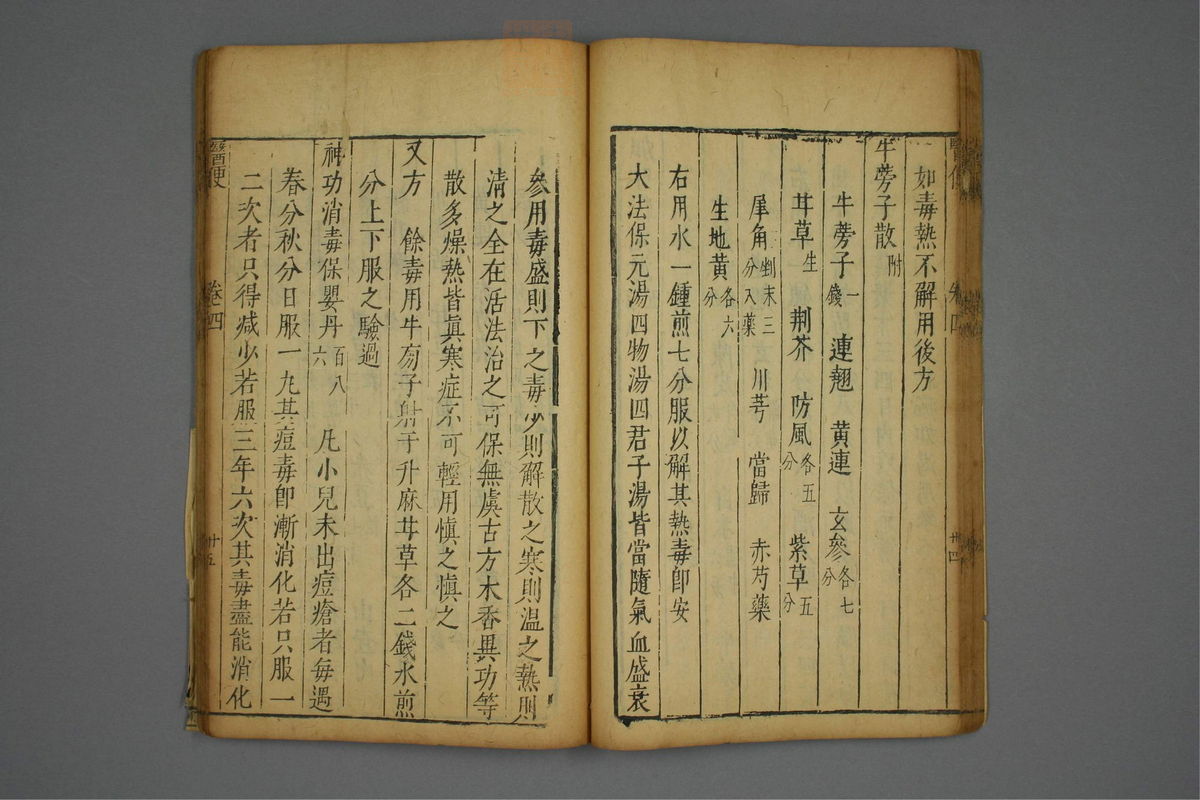 醫便
卷四
廿四
如毒熱不解用後方
牛蒡子散附
牛蒡子一錢 連翹 黃連 玄參各七分
甘草生 荆芥 防風各五分 紫草五分
犀角剉末三分入藥 川芎 當歸 赤芍藥
生地黃各六分
右用水一鍾煎七分服以解其熱毒卽安
大法保元湯四物湯四君子湯皆當隨氣血盛衰
參用毒盛則下之毒少則解散之寒則温之熱則
清之全在活法治之可保無虞古方木香異功等
散多燥熱皆眞寒症不可輕用慎之慎之
又方 餘毒用牛蒡子射干升麻甘草各二錢水煎
分上下服之驗過
神功消毒保嬰丹百八六 凡小兒未出痘瘡者每遇
春分秋分日服一丸其痘毒卽漸消化若只服一
二次者只得減少若服三年六次其毒盡能消化
醫便
卷四
廿五